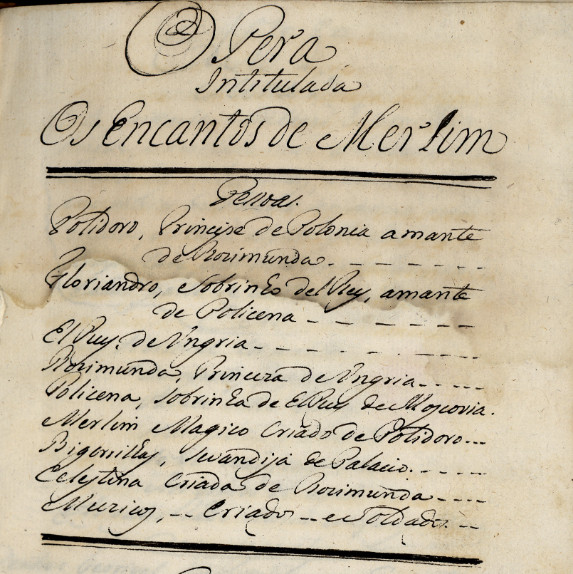 Opera
Intitulada
Os Encantos de Merlim
Pesoas.
Polidoro, Principe de Polonia amante
de Rozimunda
Floriandro, Sobrinho del Rey, amante
de Policena
El Rey de Ungria
Rozimunda, Princeza de Ungria
Policena, Sobrinha de El Rey de Moscovia.
Merlim Magico Criado de Polidoro
Bigorrilhas, de Palacio
Celestina Criada de Rozimunda
Muzicos, Criados e Soldados.